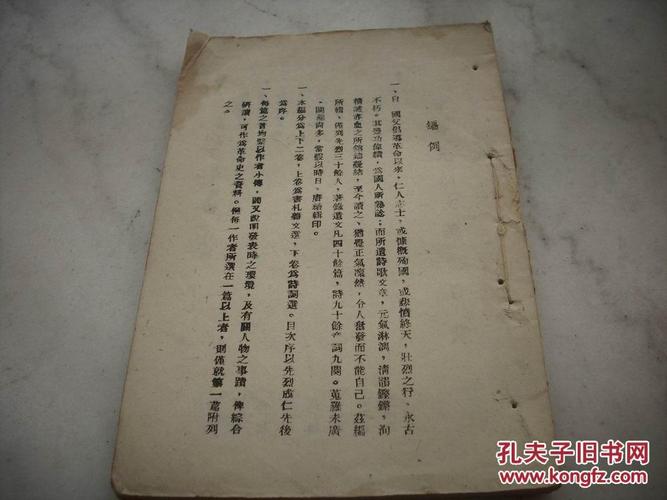 編例
一、自 國父倡導革命以來，仁人志士，或慷慨殉國，或悲憤終天，壯烈之行，永古
不朽。其豐功偉績，爲國人所熟諗；而所遺詩歌文章，元氣淋漓，淸韻鏗鏘，洵
精誠赤血之所凝結，至今讀之，猶覺正氣凜然，令人奮發而不能自已。茲編
所輯，僅列先烈三十餘人，著錄遺文凡四十餘篇，詩九十餘章，詞九闋。蒐羅未廣
，闕漏尙多，當假以時日，賡續輯印。
一、本編分爲上下二卷，上卷爲書札雜文選，下卷爲詩詞選。目次序以先烈成仁先後
爲序。
一、每篇之首均繫以作者小傳，間又說明發表時之環境，及有關人物之事蹟，俾綜合
硏讀，可作爲革命史之資料。惟每一作者所選在一篇以上者，則僅就第一篇附列
之。
孔夫子旧书网
KONGFZ.COM